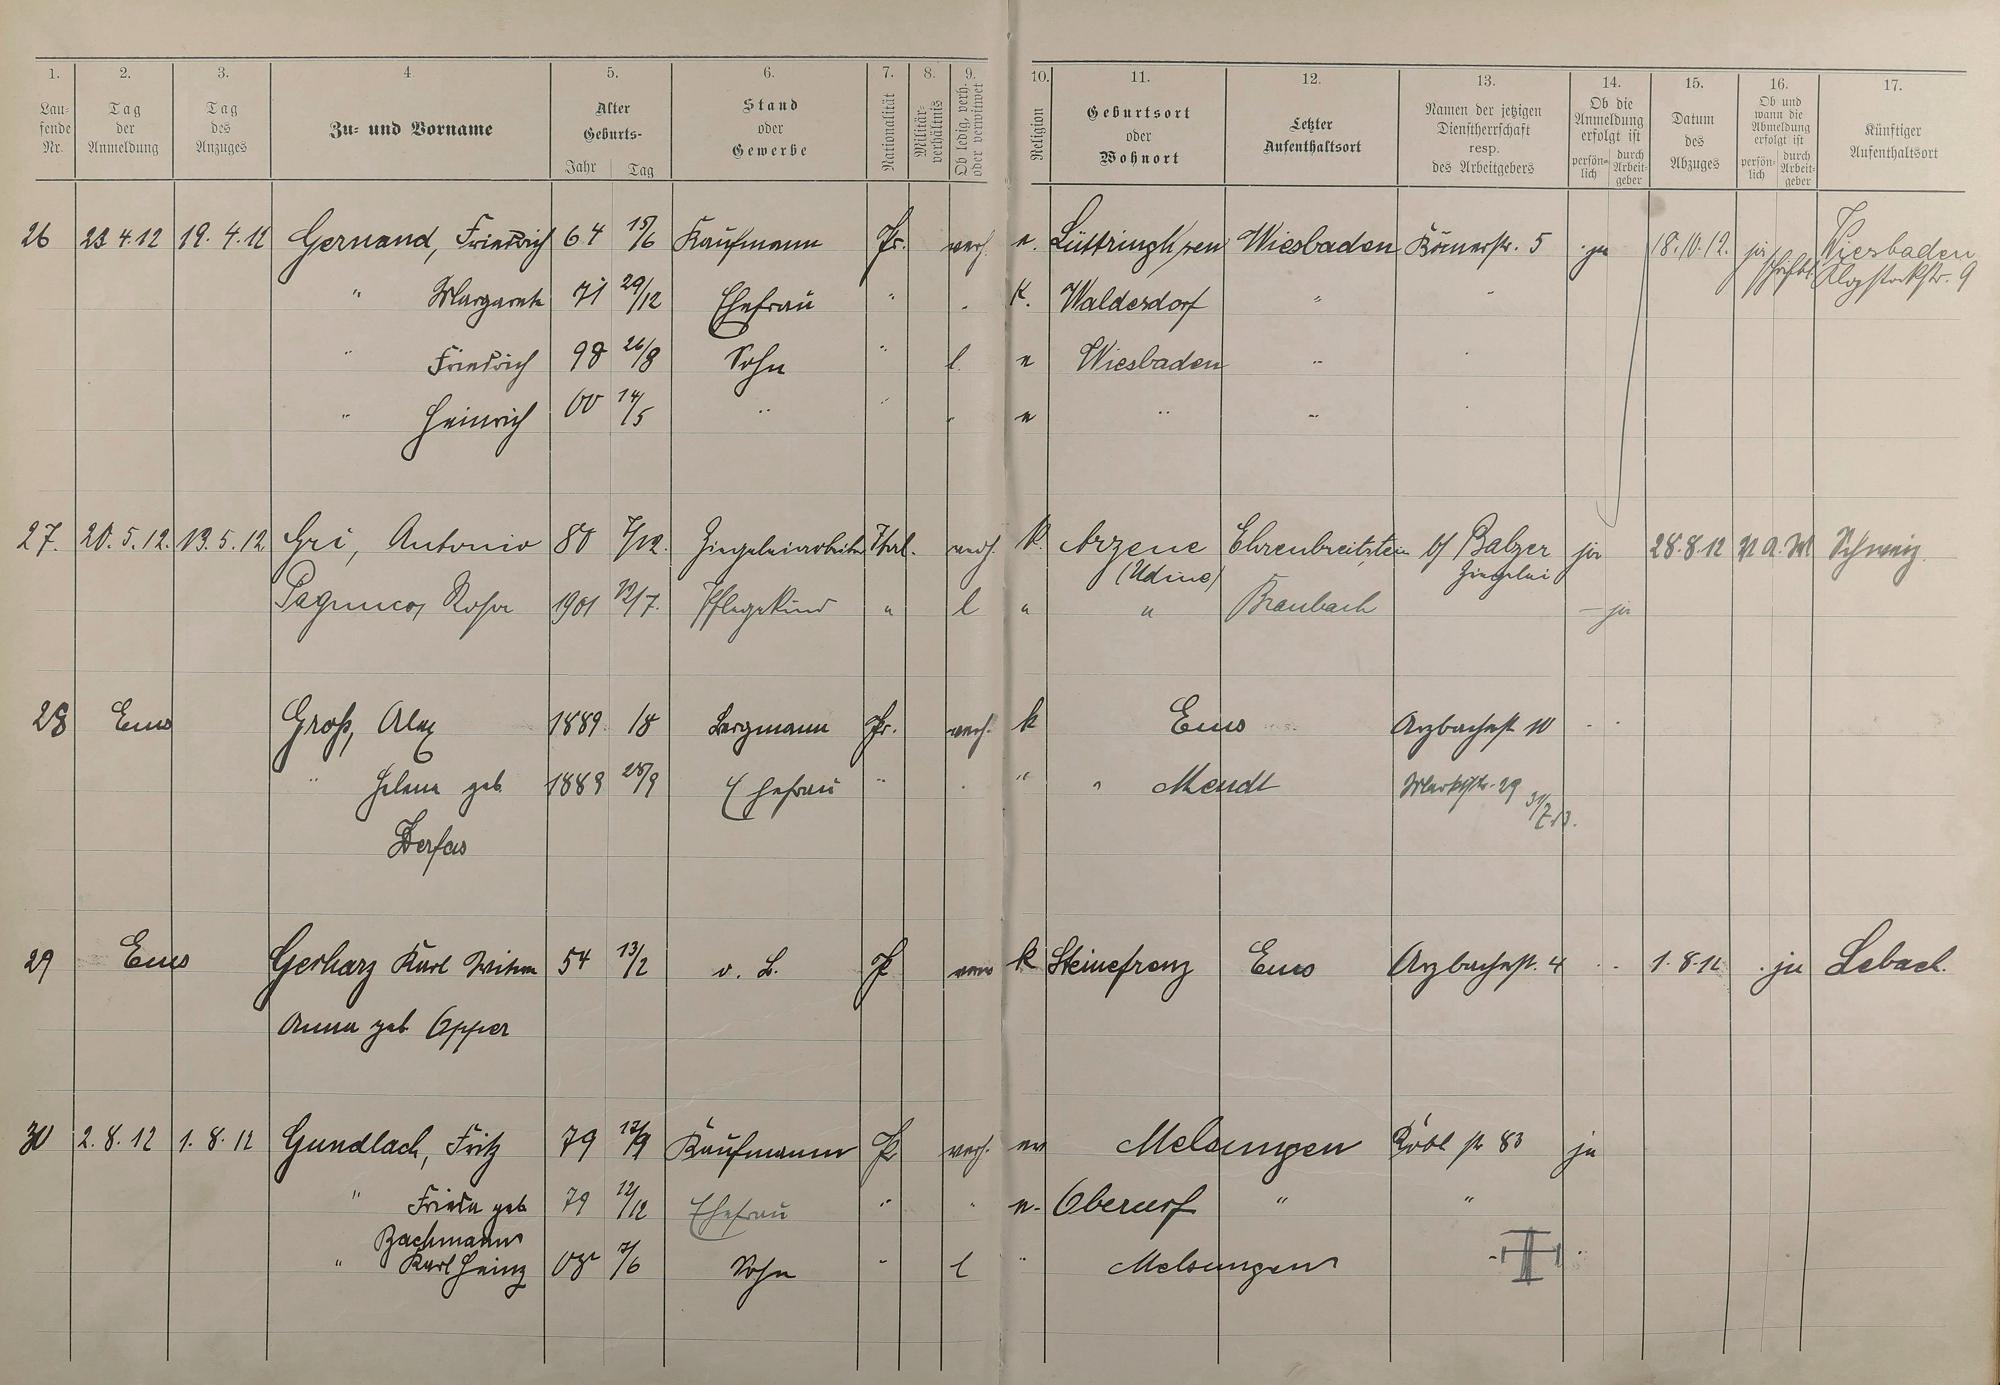 1. 2. 3. 4 5. 6. 7. 8. 9. 10. 11. 12. 13. 14. 15. 16. 17.
Laufende Nr. Tag der Anmeldung Tag des Anzuges Zu- und Vorname Alter Geburts- Jahr Tag Stand oder Gewerbe Nationalität Militärverhältnis Ob ledig, verh. oder verwitwet Religion Geburtsort oder Wohnort Letzter Aufenthaltsort Namen der jetzigen Dienstherrschaft resp. des Arbeitgebers Ob die Anmeldung erfolgt ist persönlich durch Arbeitgeber Datum des Abzuges Ob und wann die Abmeldung erfolgt ist persönlich durch Arbeitgeber Künftiger Aufenthaltsort
26 23 4.12 19. 4. 12 Gernand, Friedrich 64 15/6 Kaufmann Pr. verh. e. Wiesbaden Römerstr. 5 ja 18.10.12. ja Wiesbaden
schriftl. 9
" Margarete 71 29/12 Ehefrau " K. Waldesdorf "
" Friedrich 98 26/8 Sohn " l. e Wiesbaden "
" Heinrich 00 14/5 " " " e " "
27. 20. 5. 12. 13. 5. 12 Gri, Antonio 80 7/12. Ziegeleiarbeiter Ital. verh. k. Arzene Ehrenbreitstein b/ Balzer ja 28.8.12 Schweiz
(Udine) Ziegelei
Rosa 1901 12/7. Pflegekind " l " " Braubach – ja
28 Ems Groß, Alex 1889 18 Bergmann Pr. verh. k Ems Arzbacherst 10
" Helena geb 1889 28/9 Ehefrau " " " Mendt Marktstr. 29 31/7.13.
29 Ems Gerharz Karl Witwe 54 13/2 o. B. Pr k Steinefrenz Ems Arzbacherst. 4 1.8.12 ja Lebach.
Anna geb Opper
30 2. 8. 12 1. 8. 12 Gundlach, Fritz 79 17/9 Kaufmann Pr verh. ev Melsungen 83 ja
" Frieda geb 79 12/12 Ehefrau " " e. Oberurf " "
Bachmann
" Karl Heinz 08 7/6 Sohn " l " Melsungen